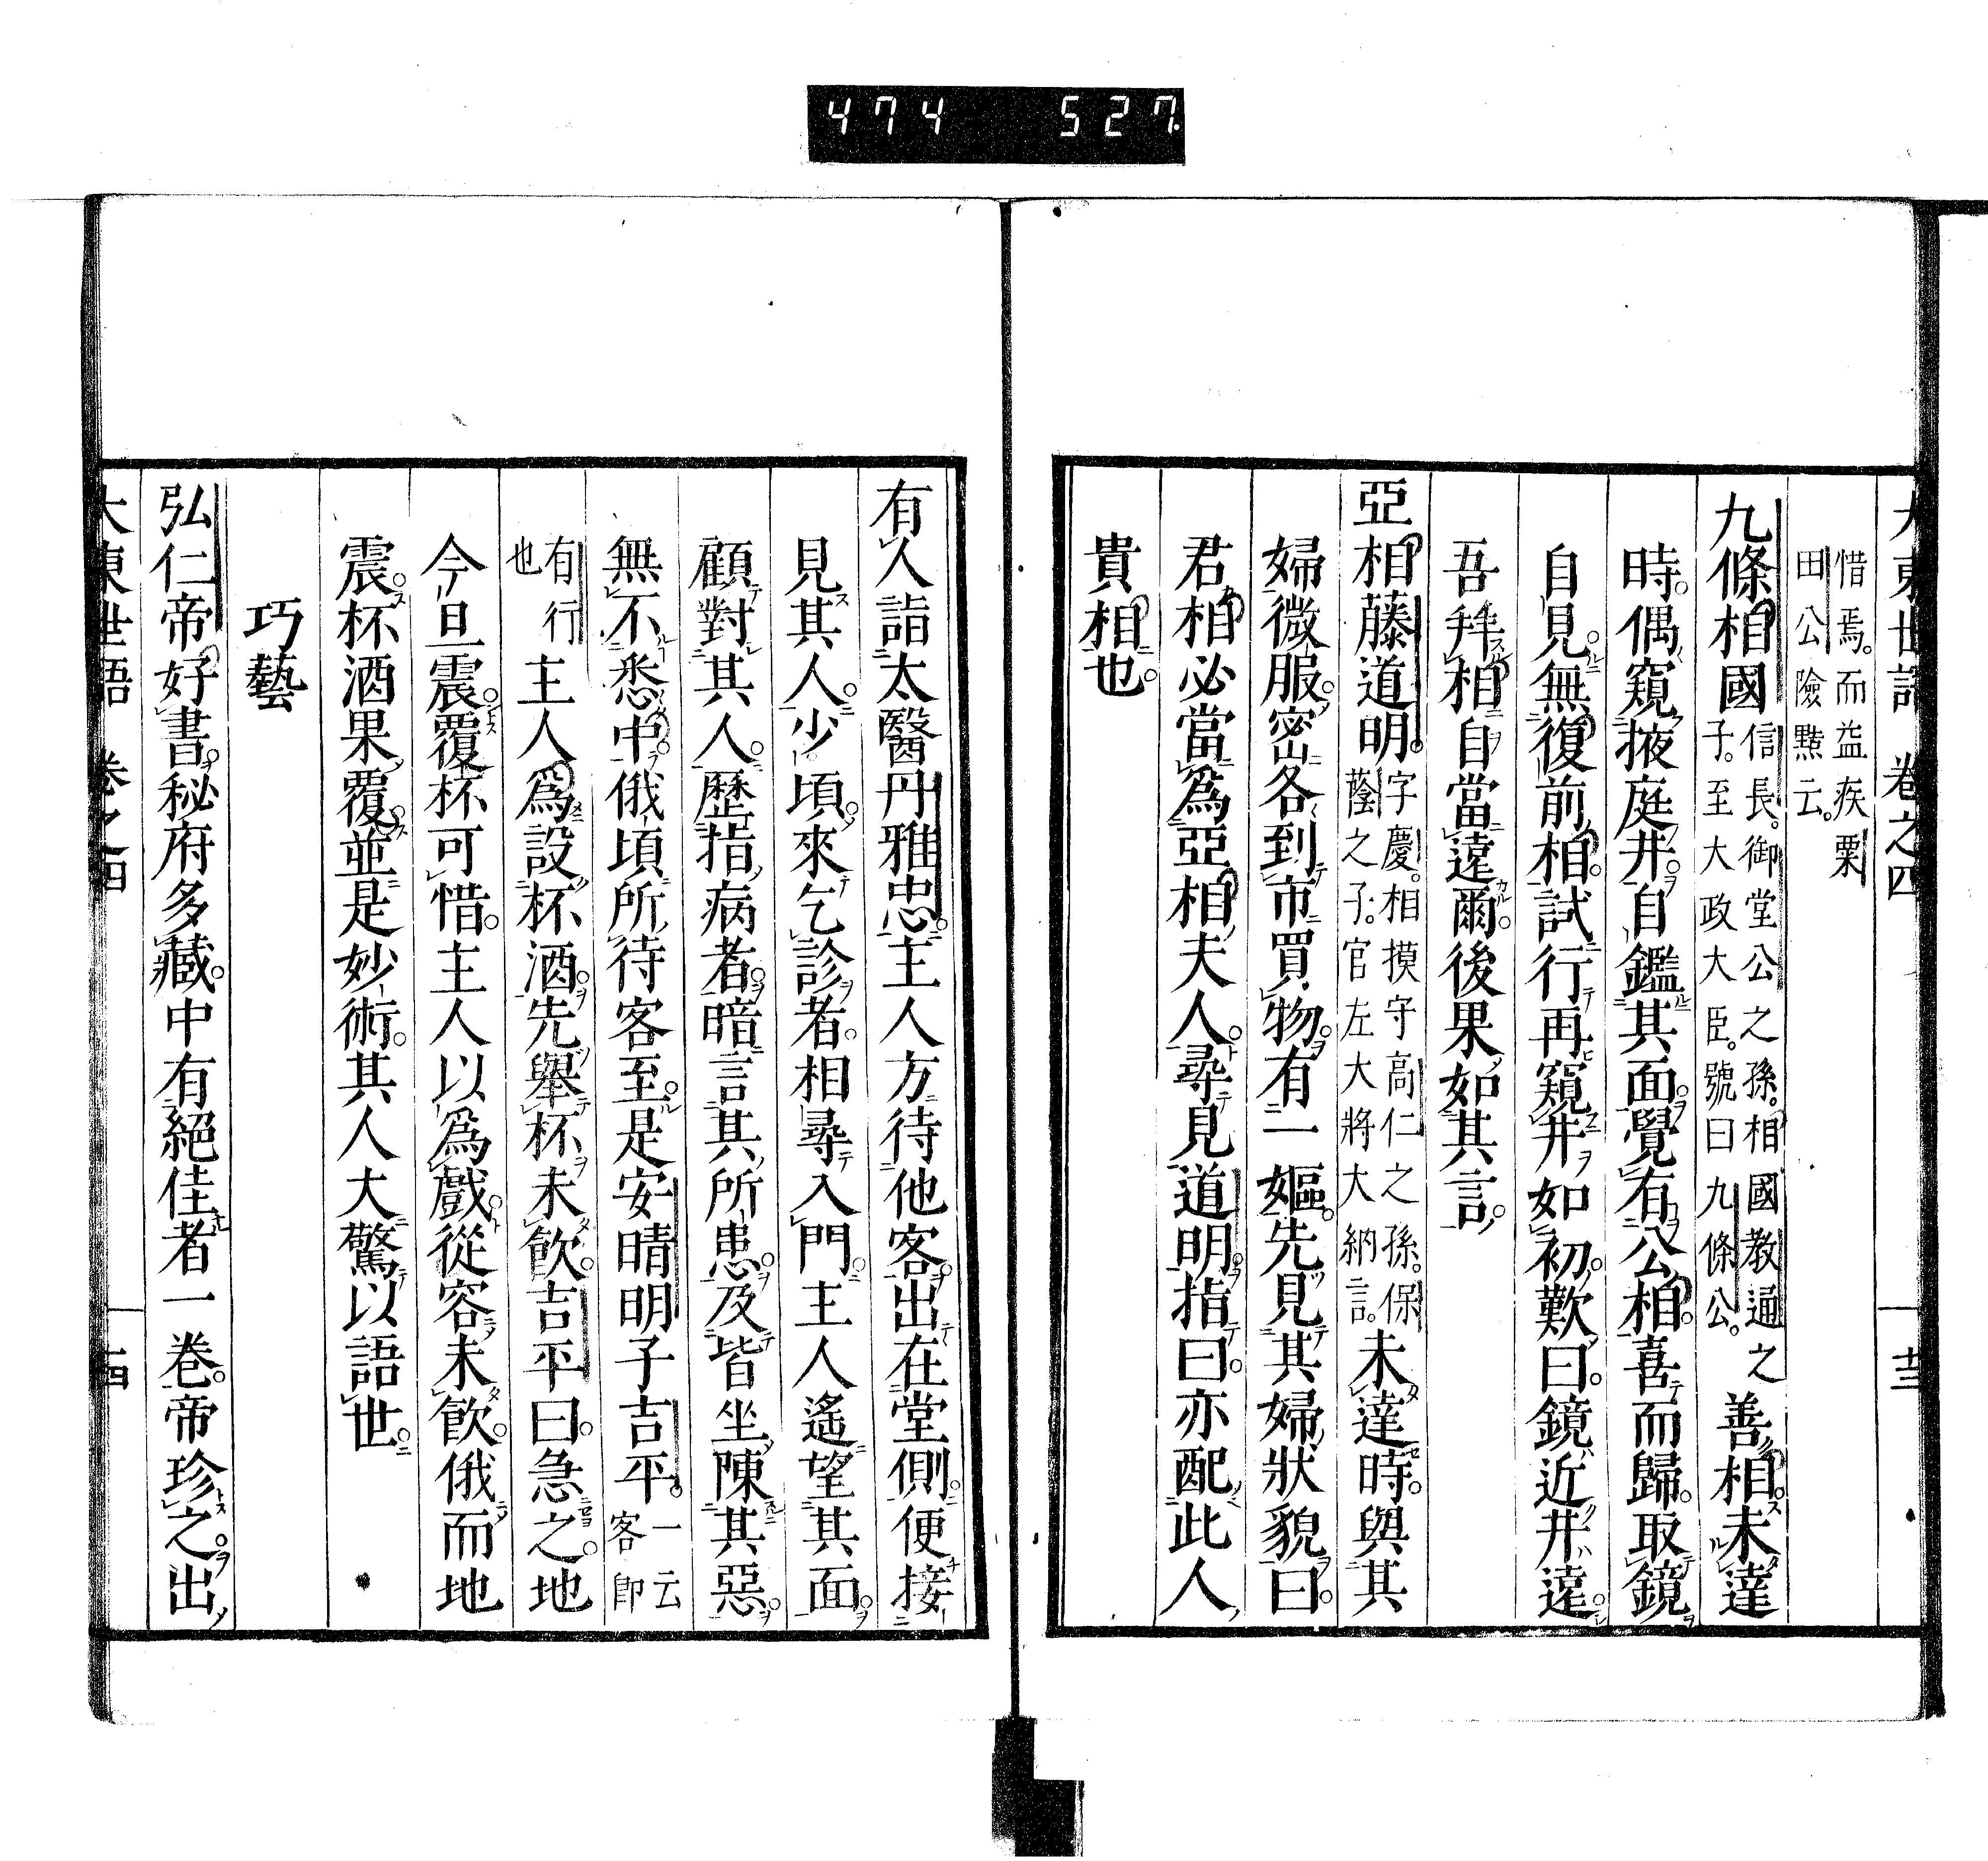 474 527
大東世語 卷之四 十三
惜焉。而益疾粟
田公險黠云。
九條相國信長。御堂公之孫。相國教通之子。至大政大臣。號曰九條公。善相。未達
時。偶窺掖庭井。自鑑其面。覺有公相。喜而歸。取鏡
自見。無復前相。試行再窺井如初。歎曰。鏡近井遠。
吾拜相自當遠爾。後果如其言。
亞相藤道明。字慶。相摸守高仁之孫。保蔭之子。官左大將大納言。未達時。與其
婦微服。密各到市買物。有一嫗。先見其婦狀貌曰。
君相必當為亞相夫人。尋見道明。指曰。亦配此人
貴相也。
有人詣太醫丹雅忠。主人方待他客。出在堂側。便接
見其人。少頃。來乞診者。相尋入門。主人遙望其面。
顧對其人。歷指病者。暗言其所患。及皆坐陳其惡。
無不悉中。俄頃所待客至。是安晴明子吉平。一云客卽
有行也主人為設杯酒。先舉杯未飲。吉平曰。急之。地
今且震。覆杯可惜。主人以為戲。從容未飲。俄而地
震。杯酒果覆。並是妙術。其人大驚。以語世。
巧藝
弘仁帝好書。秘府多藏。中有絕佳者一卷。帝珍之。出
大東世語 卷之四 十四